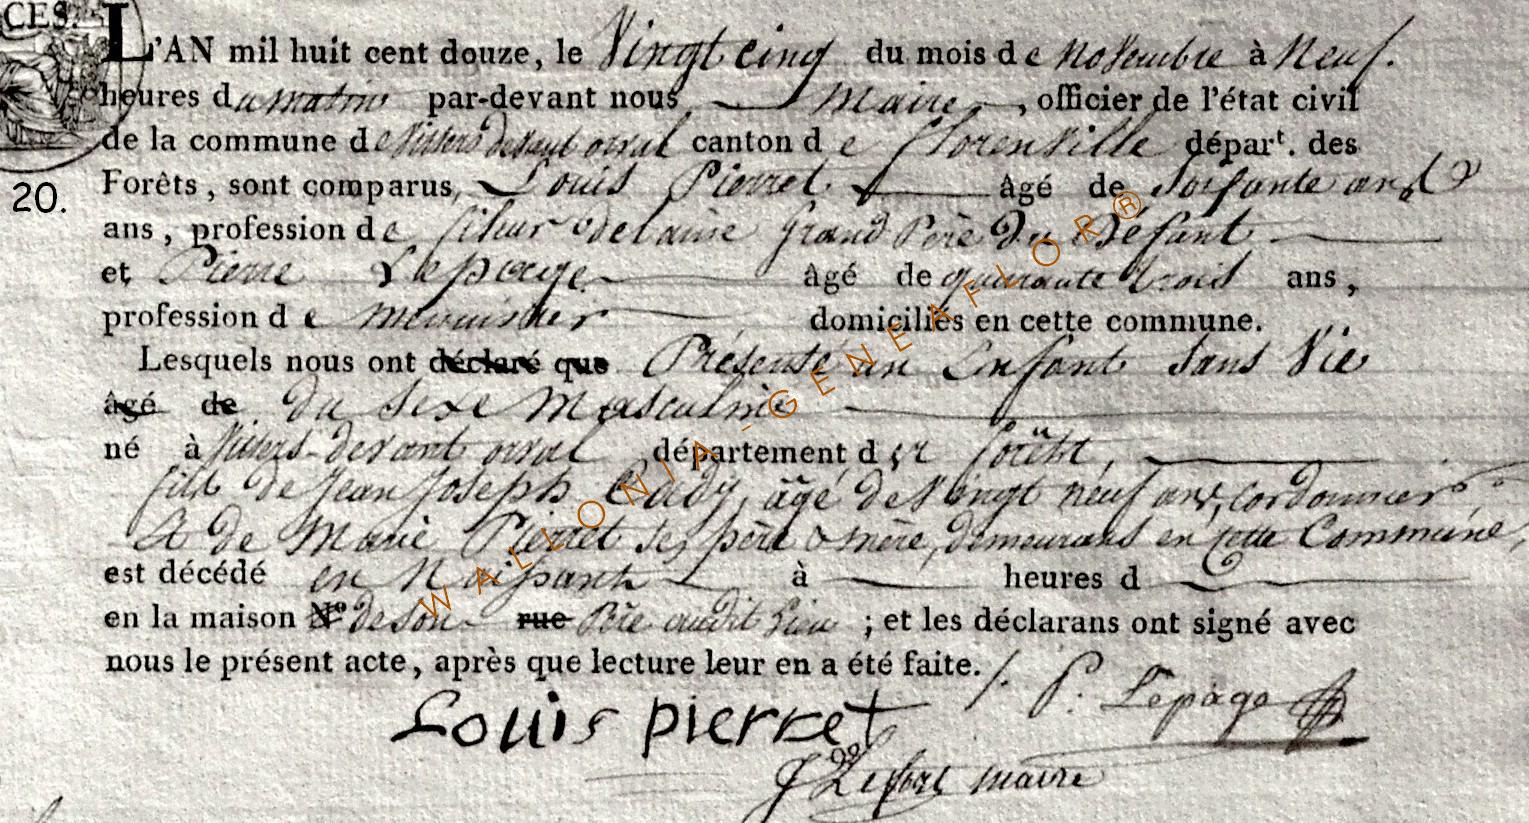 CES.
L'AN mil huit cent douze, le Vingt cinq du mois de Novembre à Neuf.
heures du matin par-devant nous Maire, officier de l'état civil
de la commune de Villers devant orval canton de florenville départ. des
20.
Forêts, sont comparus, Louis Pierret âgé de Soissante ans
ans, profession de fileur de laine grand Père Du Défant
et Pierre Lepage âgé de quarante trois ans,
profession de menuisier domiciliés en cette commune.
Lesquels nous ont déclaré que Présenté un Enfant Sans Vie
âgé de du Sexe Masculine
né à Villers-devant orval département des forêts,
fils de Jean Joseph Cady, âgé de Vingt neuf ans, cordonnier
& de Marie Pierret ses père & mère, demeurans en cette Commune,
est décédé en Naissant à heures d
en la maison N° de son rue Père audit Lieu ; et les déclarans ont signé avec
nous le présent acte, après que lecture leur en a été faite./.
P. Lepage
Louis pierret
J Lefort maire
WALLONIA-GENEAFLOR®